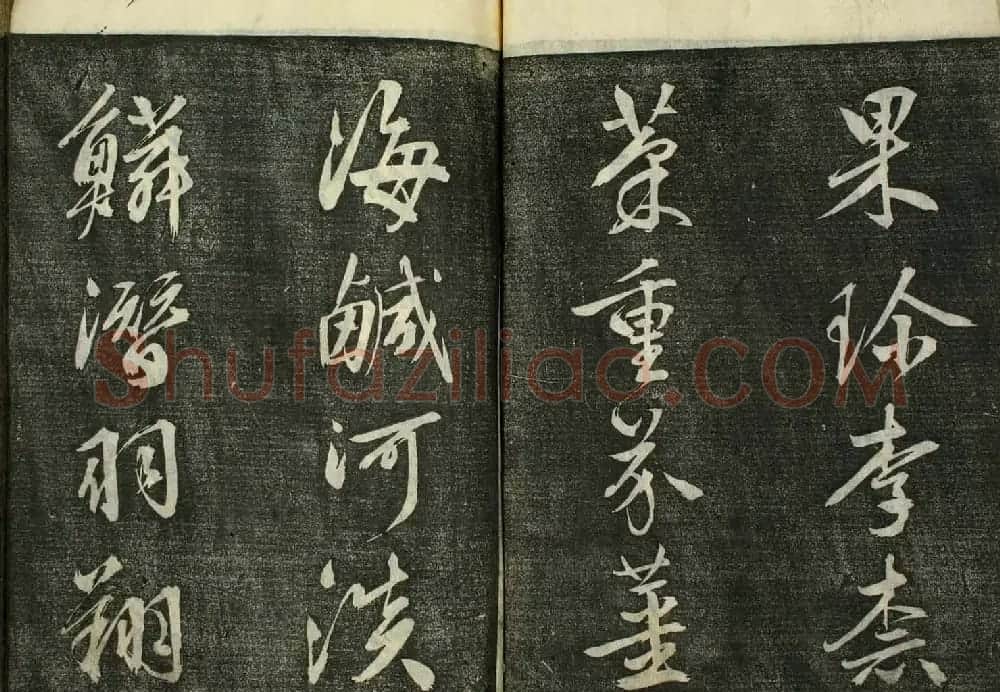 果珍李柰
菜重芥薑
海鹹河淡
鱗潛羽翔
Shufaziliao.COM